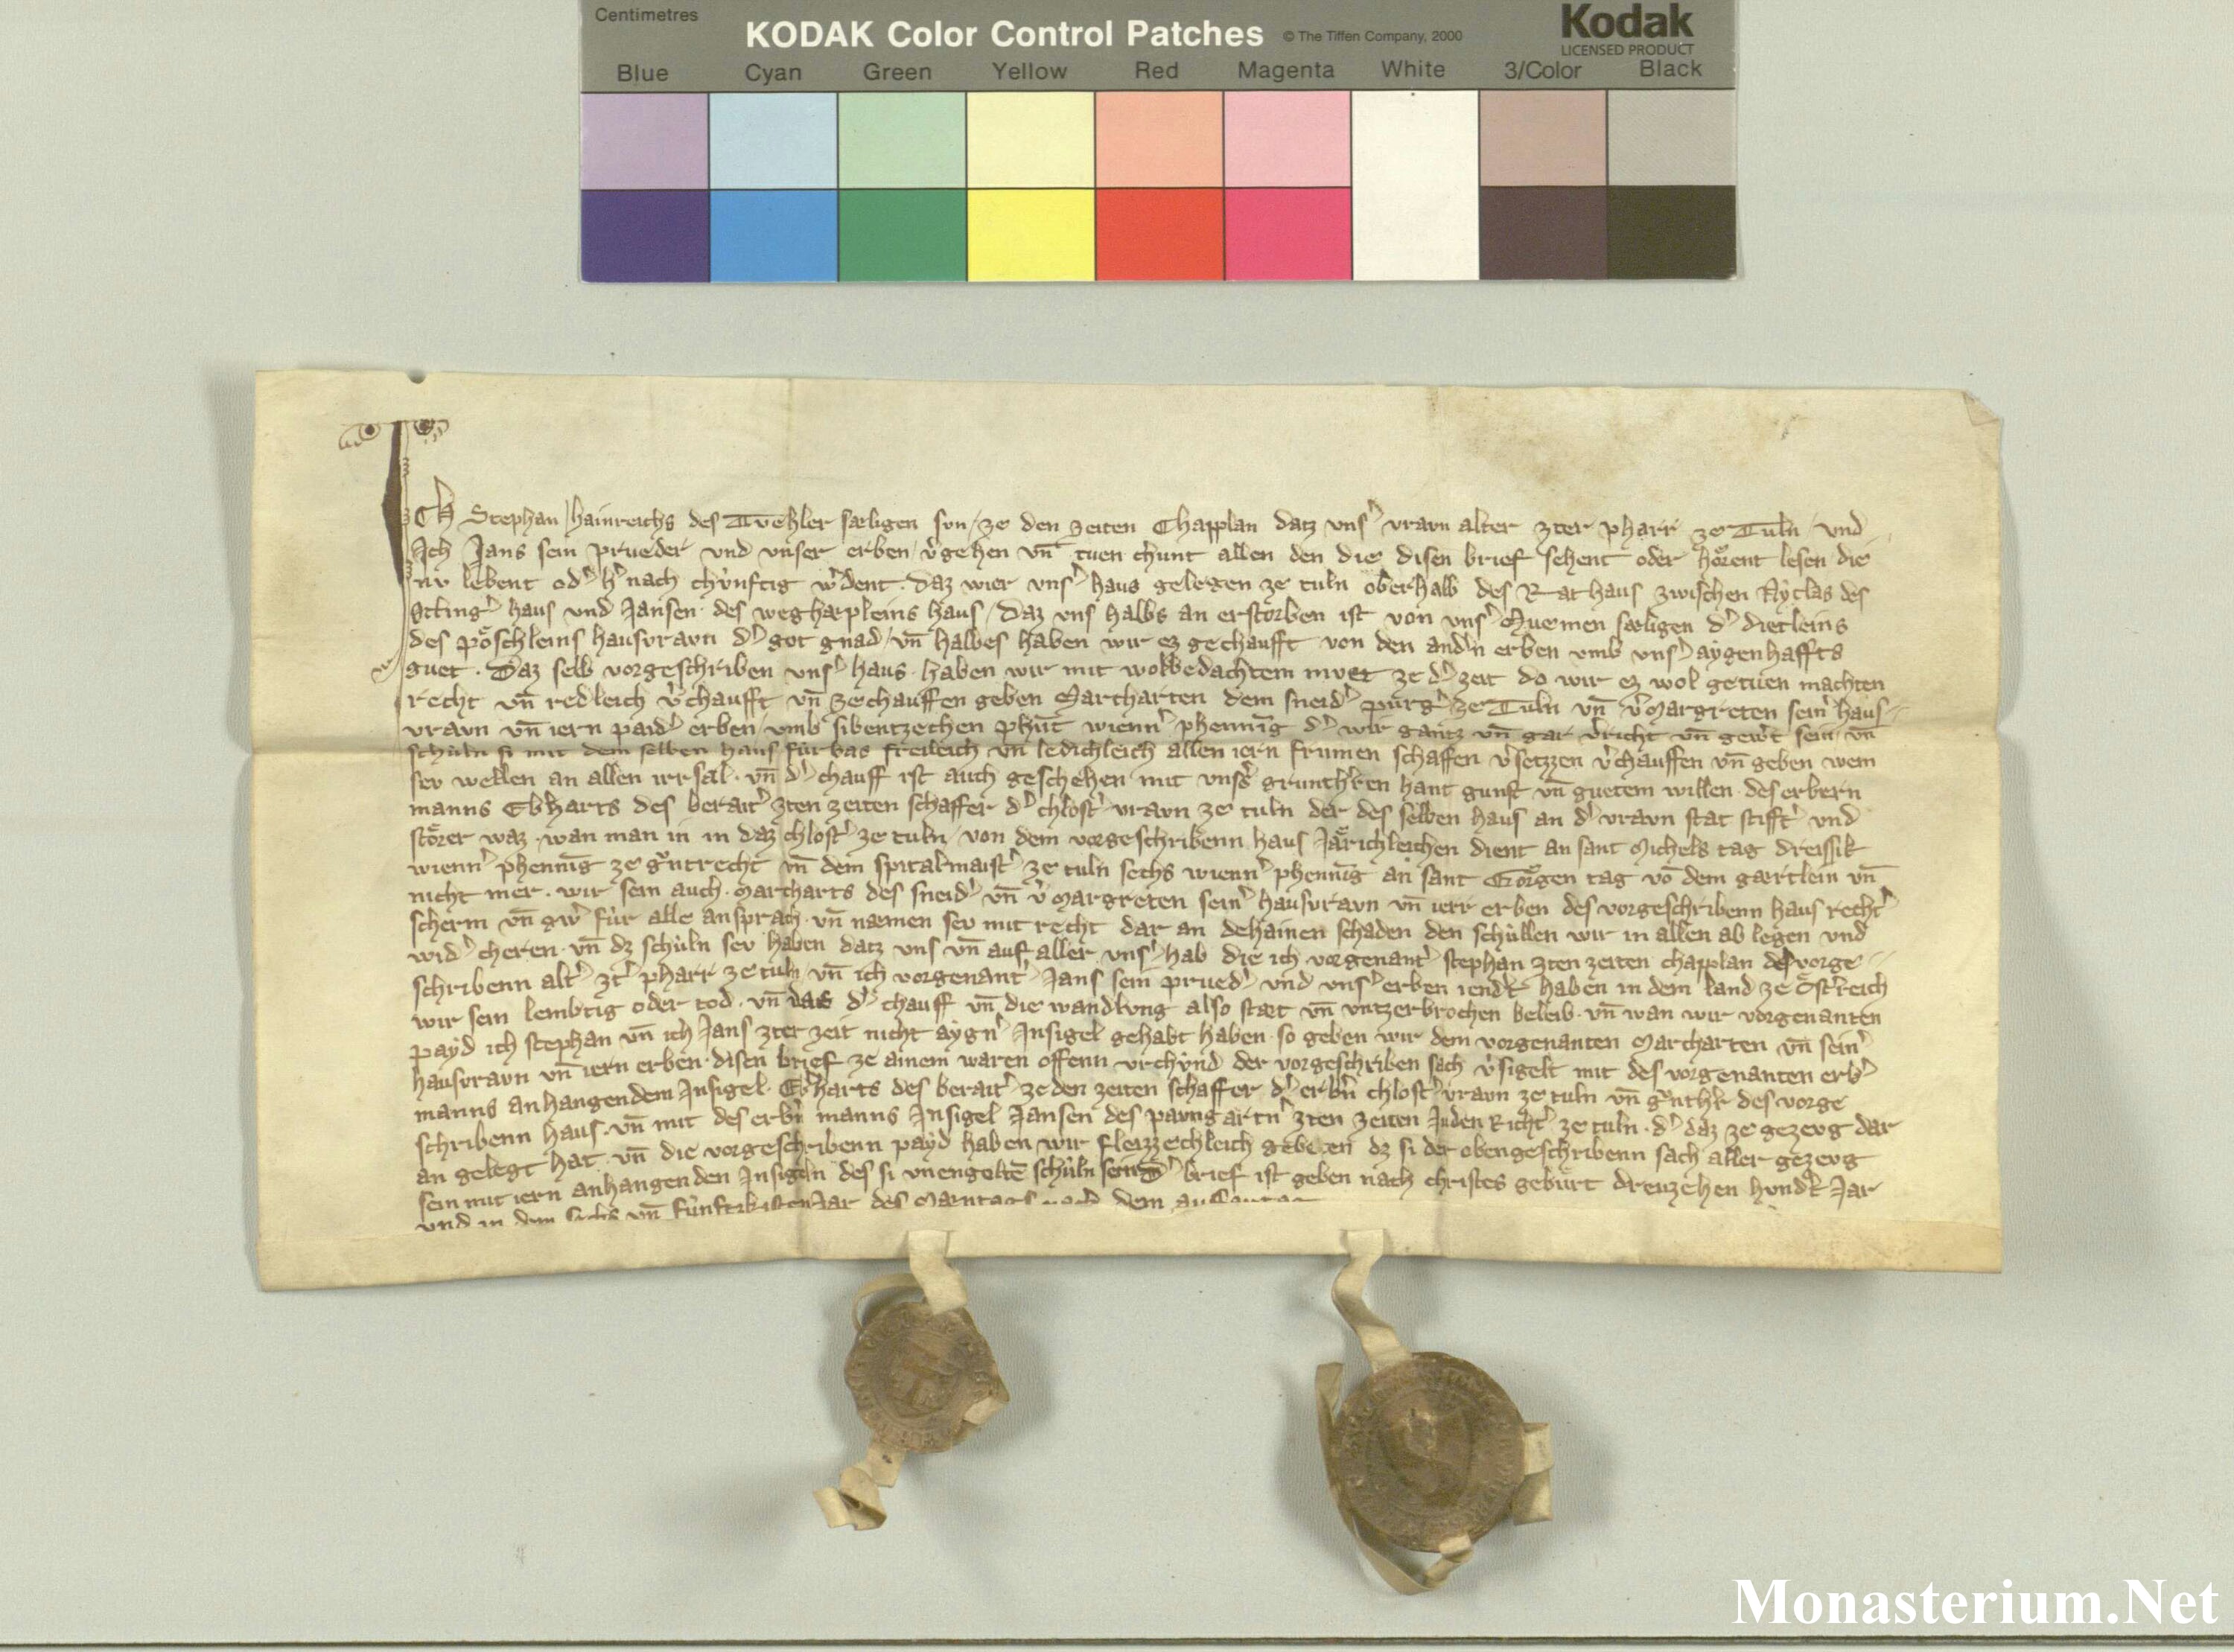 Centimetres
KODAK Color Control Patches © The Tiffen Company, 2000 Kodak
LICENSED PRODUCT
Blue Cyan Green Yellow Red Magenta White 3/Color Black
Ich Stephan hainreichs des Tuehler sæligen sun ze den zeiten Chapplan datz uns' vravn alter zter pharr ze Tuln und
Ich Jans sein prueder und unser erben v'gehen un̄ tuen chunt allen den die disen brief sehent oder hörent lesen die
nu lebent od' h'nach chünftig w'dent. Daz wier uns' haus gelegen ze tuln oberhalb des Rathaus zwischen Nyclas des
haus und Jansen des wegharpleins haus / daz uns halbs an erstorben ist von uns' Muemen sæligen d' dietleins
des pöschleins hausvravn d' got gnad / un̄ halbes haben wir ez gechaufft von den and'n erben umb uns' aygenhaffts
guet. Daz selb vorgeschriben uns' haus haben wir mit wolbedachtem muet ze d' zeit do wir ez wol getuen machten
recht un̄ redleich v'chaufft un̄ ze chauffen geben Marcharten dem sneid' purg' ze Tuln un̄ v' Margreten sein' haus-
vravn un̄ iern paid' erben / umb sibentzehen phu̅t wienn' phenni̅g d' wir gantz un̄ gar v'richt un̄ gew't sein / un̄
schuln si mit dem selben haus fürbas freileich un̄ ledichleich allen iern frumen schaffen v'setzzen v'chauffen un̄ geben wem
sev wellen an allen irrsal. un̄ d' chauff ist auch geschehen mit unss' grunth'ren hant gunst un̄ guetem willen. des erbern
manns Eb'harts des berait' zten zeiten schaffer d' chlost' vravn ze tuln der des selben haus an d' vravn stat stifft' und
störer waz. wan man in in daz chlost' ze tuln / von dem vorgeschribenn haus Järichleichen dient an sant Michels tag dreissik
wienn' phenni̅g ze g'ntrecht un̄ dem spitalmaist' ze tuln sechs wienn' phenni̅g an sant Görgen tag vo̅ dem gærtlein un̄
nicht mer. wir sein auch. Marcharts des sneid' un̄ v' Margreten sein' hausvravn un̄ ierr erben des vorgeschribenn haus recht'
scherm un̄ gw' für alle ansprach. un̄ næmen sev mit recht dar an dehainen schaden den schüllen wir in allen ab legen und
wid' cheren. un̄ dz schüln sev haben datz uns un̄ auf aller uns' hab die ich vorgenant' stephan zten zeiten chapplan des vorge-
schribenn alt' zt' pharr ze tuln un̄ ich vorgenant' Jans sein prued' und uns' erben iendt' haben in dem land ze Öst'reich
wir sein lembtig oder tod. un̄ daz d' chauff un̄ die wandlung also stæt un̄ untzerbrochen beleib. un̄ wan wir vorgenanten
payd ich stephan un̄ ich Jans zter zeit nicht aygn' Insigel gehabt haben. so geben wir dem vorgenanten Marcharten un̄ sein'
hausvravn un̄ iern erben. disen brief ze ainem waren offenn urchünd der vorgeschriben sach v'sigelt mit des vorgenanten erb'
manns anhangendem Insigel. Eb'harts des berait' ze den zeiten schaffer d' erb'n chlost' vravn ze tuln un̄ g'nth'r des vorge
schribenn haus. un̄ mit des erb'n manns Insigel Jansen des pavngartn' zten zeiten Juden Richt' ze tuln. d' daz ze gezevg dar
an gelegt hat. un̄ die vorgeschribenn payd haben wir fleizzechleich gebeten dz si der obengeschribenn sach aller gezevg
sein mit iern anhangenden Insigeln des si unengolte̅ schüln sein d' brief ist geben nach christes gebürt dreuzehen hundt' Jar
und in dem sechs un̄ fünftzkisten Jar des Mæntags nach dem
Monasterium.Net